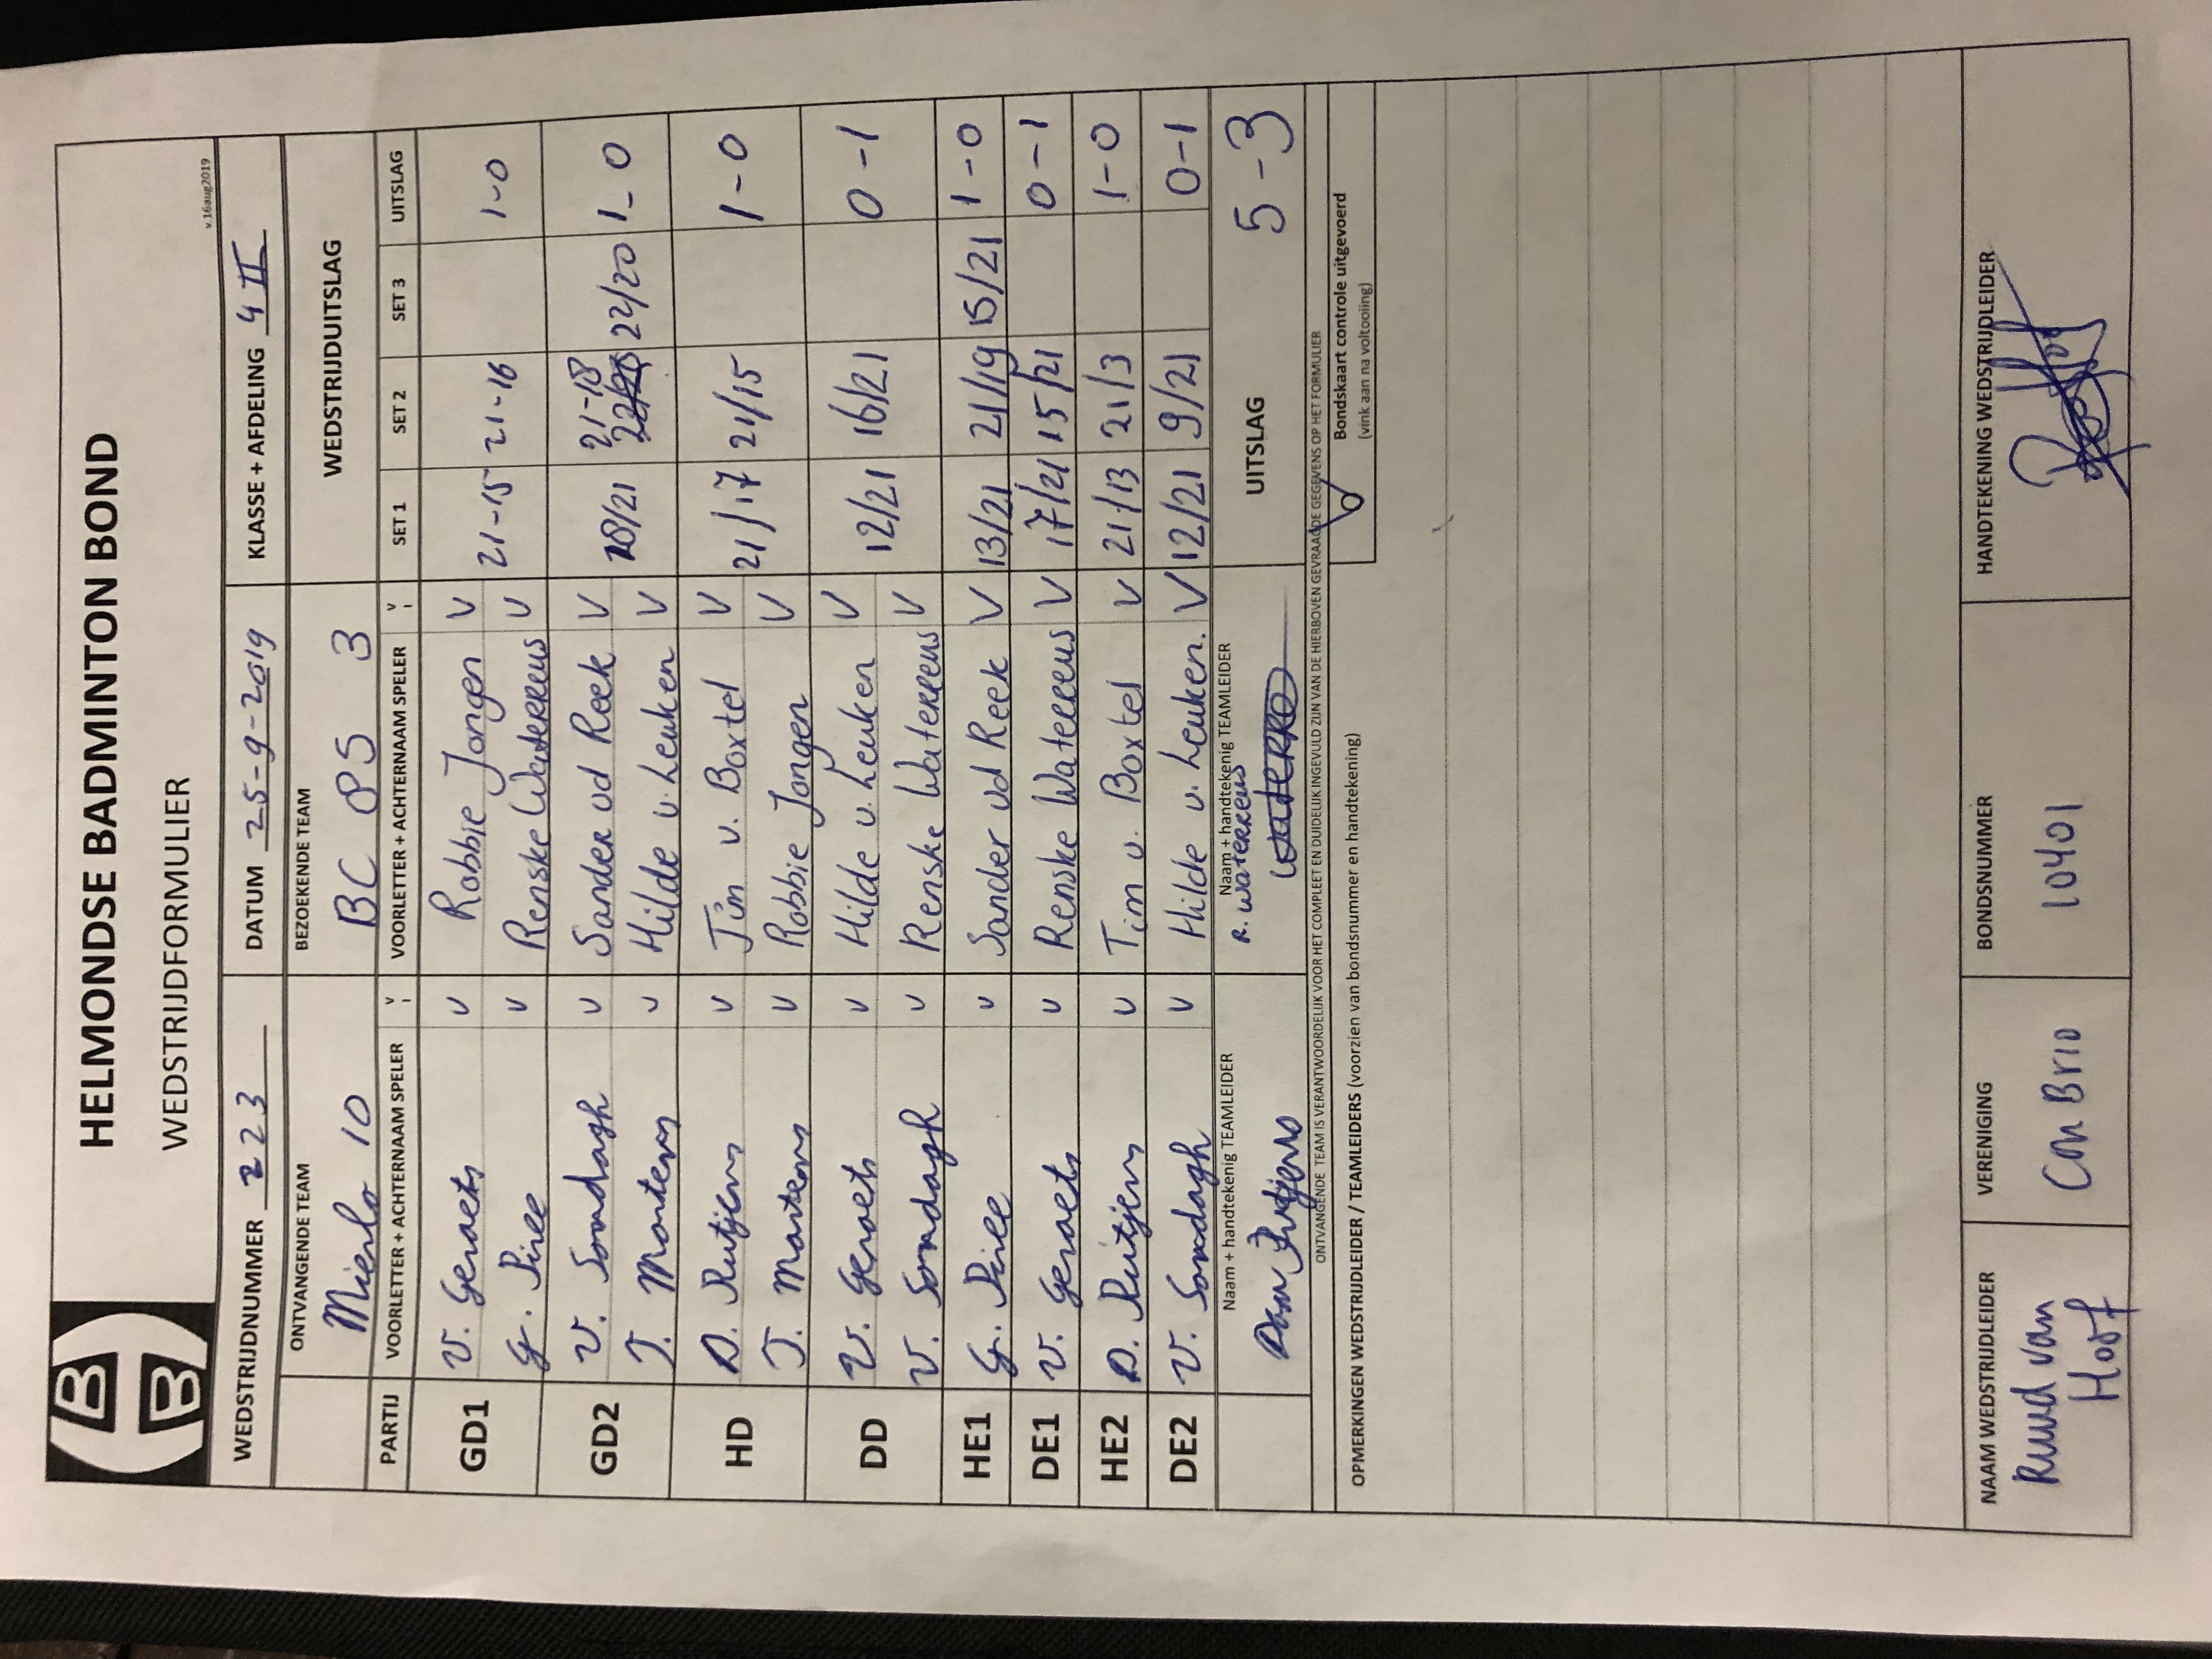 HELMONDSE BADMINTON BOND
WEDSTRIJDFORMULIER
v.16aug2019
WEDSTRIJDNUMMER 223 DATUM 25-9-2019 KLASSE + AFDELING 4 II
ONTVANGENDE TEAM BEZOEKENDE TEAM WEDSTRIJDUITSLAG
Mierlo 10 BC 85 3
PARTIJ VOORLETTER + ACHTERNAAM SPELER V VOORLETTER + ACHTERNAAM SPELER V SET 1 SET 2 SET 3 UITSLAG
GD1 V. Geraets v Robbie Jongen V 21-15 21-16 1-0
G. Piree v Renske Waterreus V
GD2 V. Sondagh v Sander vd Reek V 18/21 21-18 22/20 1-0
T. Martens v Hilde v. Leuken V
HD D. Rutjens v Tim v. Boxtel V 21/17 21/15 1-0
T. Martens v Robbie Jongen V
DD V. Geraets v Hilde v. Leuken V 12/21 16/21 0-1
V. Sondagh v Renske Waterreus V
HE1 G. Piree v Sander vd Reek V 13/21 21/19 15/21 1-0
DE1 V. Geraets v Renske Waterreus V 17/21 15/21 0-1
HE2 D. Rutjens v Tim v. Boxtel V 21/13 21/3 1-0
DE2 V. Sondagh v Hilde v. Leuken. V 12/21 9/21 0-1
Naam + handtekenig TEAMLEIDER Naam + handtekenig TEAMLEIDER UITSLAG 5-3
Daan Rutjens R. Waterreus
ONTVANGENDE TEAM IS VERANTWOORDELIJK VOOR HET COMPLEET EN DUIDELIJK INGEVULD ZIJN VAN DE HIERBOVEN GEVRAAGDE GEGEVENS OP HET FORMULIER
OPMERKINGEN WEDSTRIJDLEIDER / TEAMLEIDERS (voorzien van bondsnummer en handtekening)
Bondskaart controle uitgevoerd
(vink aan na voltooiing)
NAAM WEDSTRIJDLEIDER VERENIGING BONDSNUMMER HANDTEKENING WEDSTRIJDLEIDER
Ruud van Con Brio 10401
Hoof